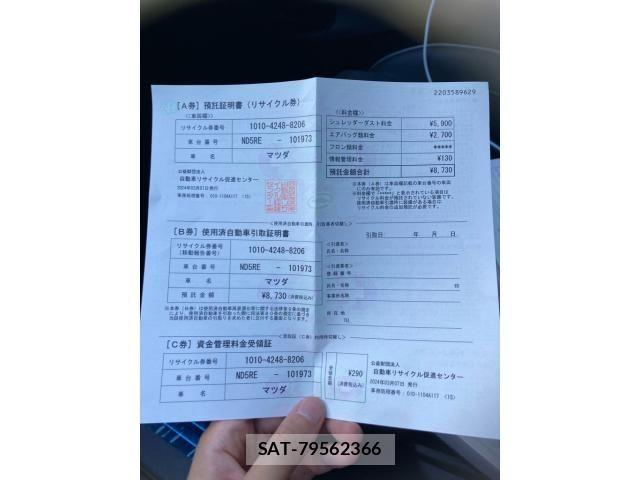 2203589629
[A券] 預託証明書(リサイクル券)
<<車両欄>>
リサイクル券番号 1010-4248-8206
車台番号 ND5RE - 101973
車名 マツダ
公益財団法人
自動車リサイクル促進センター
2024年03月07日発行
事務処理番号: 010-1104A117 (1S)
<<料金欄>>
シュレッダーダスト料金 ¥5,900
エアバッグ類料金 ¥2,700
フロン類料金 *****
情報管理料金 ¥130
預託金額合計 ¥8,730
[B券] 使用済自動車引取証明書
リサイクル券番号
(移動報告番号) 1010-4248-8206
車台番号 ND5RE - 101973
預託金額 ¥8,730 (消費税込み)
引取日: 年 月 日
<引渡者>
氏名・名称
<引取業者>
登録番号
氏名・名称 印
事業所名称
所在地
TEL
[C券] 資金管理料金受領証
リサイクル券番号 1010-4248-8206
車台番号 ND5RE - 101973
車名 マツダ
¥290
(消費税込み)
公益財団法人
自動車リサイクル促進センター
2024年03月07日 発行
事務処理番号: 010-1104A117 (1S)
SAT-79562366